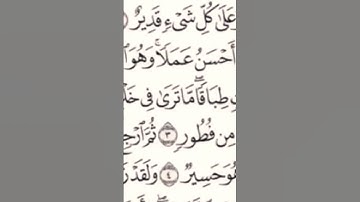 عَلَىٰ كُلِّ شَىْءٍ قَدِيرٌ
أَحْسَنُ عَمَلًا ۚ وَهُوَ
طِبَاقًا ۖ مَّا تَرَىٰ فِى
مِن فُطُورٍ ٣ ثُمَّ
هُوَ حَسِيرٌ ٤ وَلَقَدْ